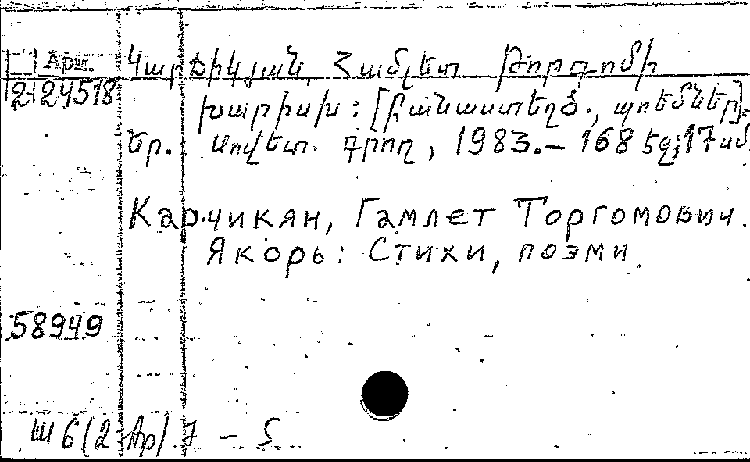 Арм.
Կարճիկյան, Համլետ Թորգոմի
2-24518
Խարիսխ: [Բանաստեղծ., պոեմներ].–
Եր.: Սովետ. գրող, 1983.– 168 էջ; 17 սմ.
Карчикян, Гамлет Торгомович.
Якорь: Стихи, поэми
58949
Ш6(2Ар).7 – 5